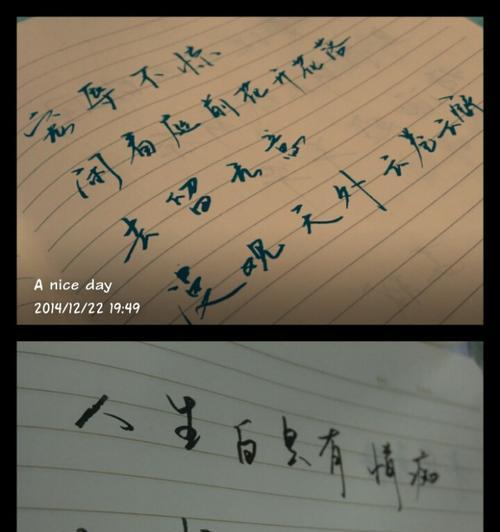 宠辱不惊
闲看庭前花开花落
去留无意
漫观天外云卷云舒
A nice day
2014/12/22 19:49
人生自只有情痴